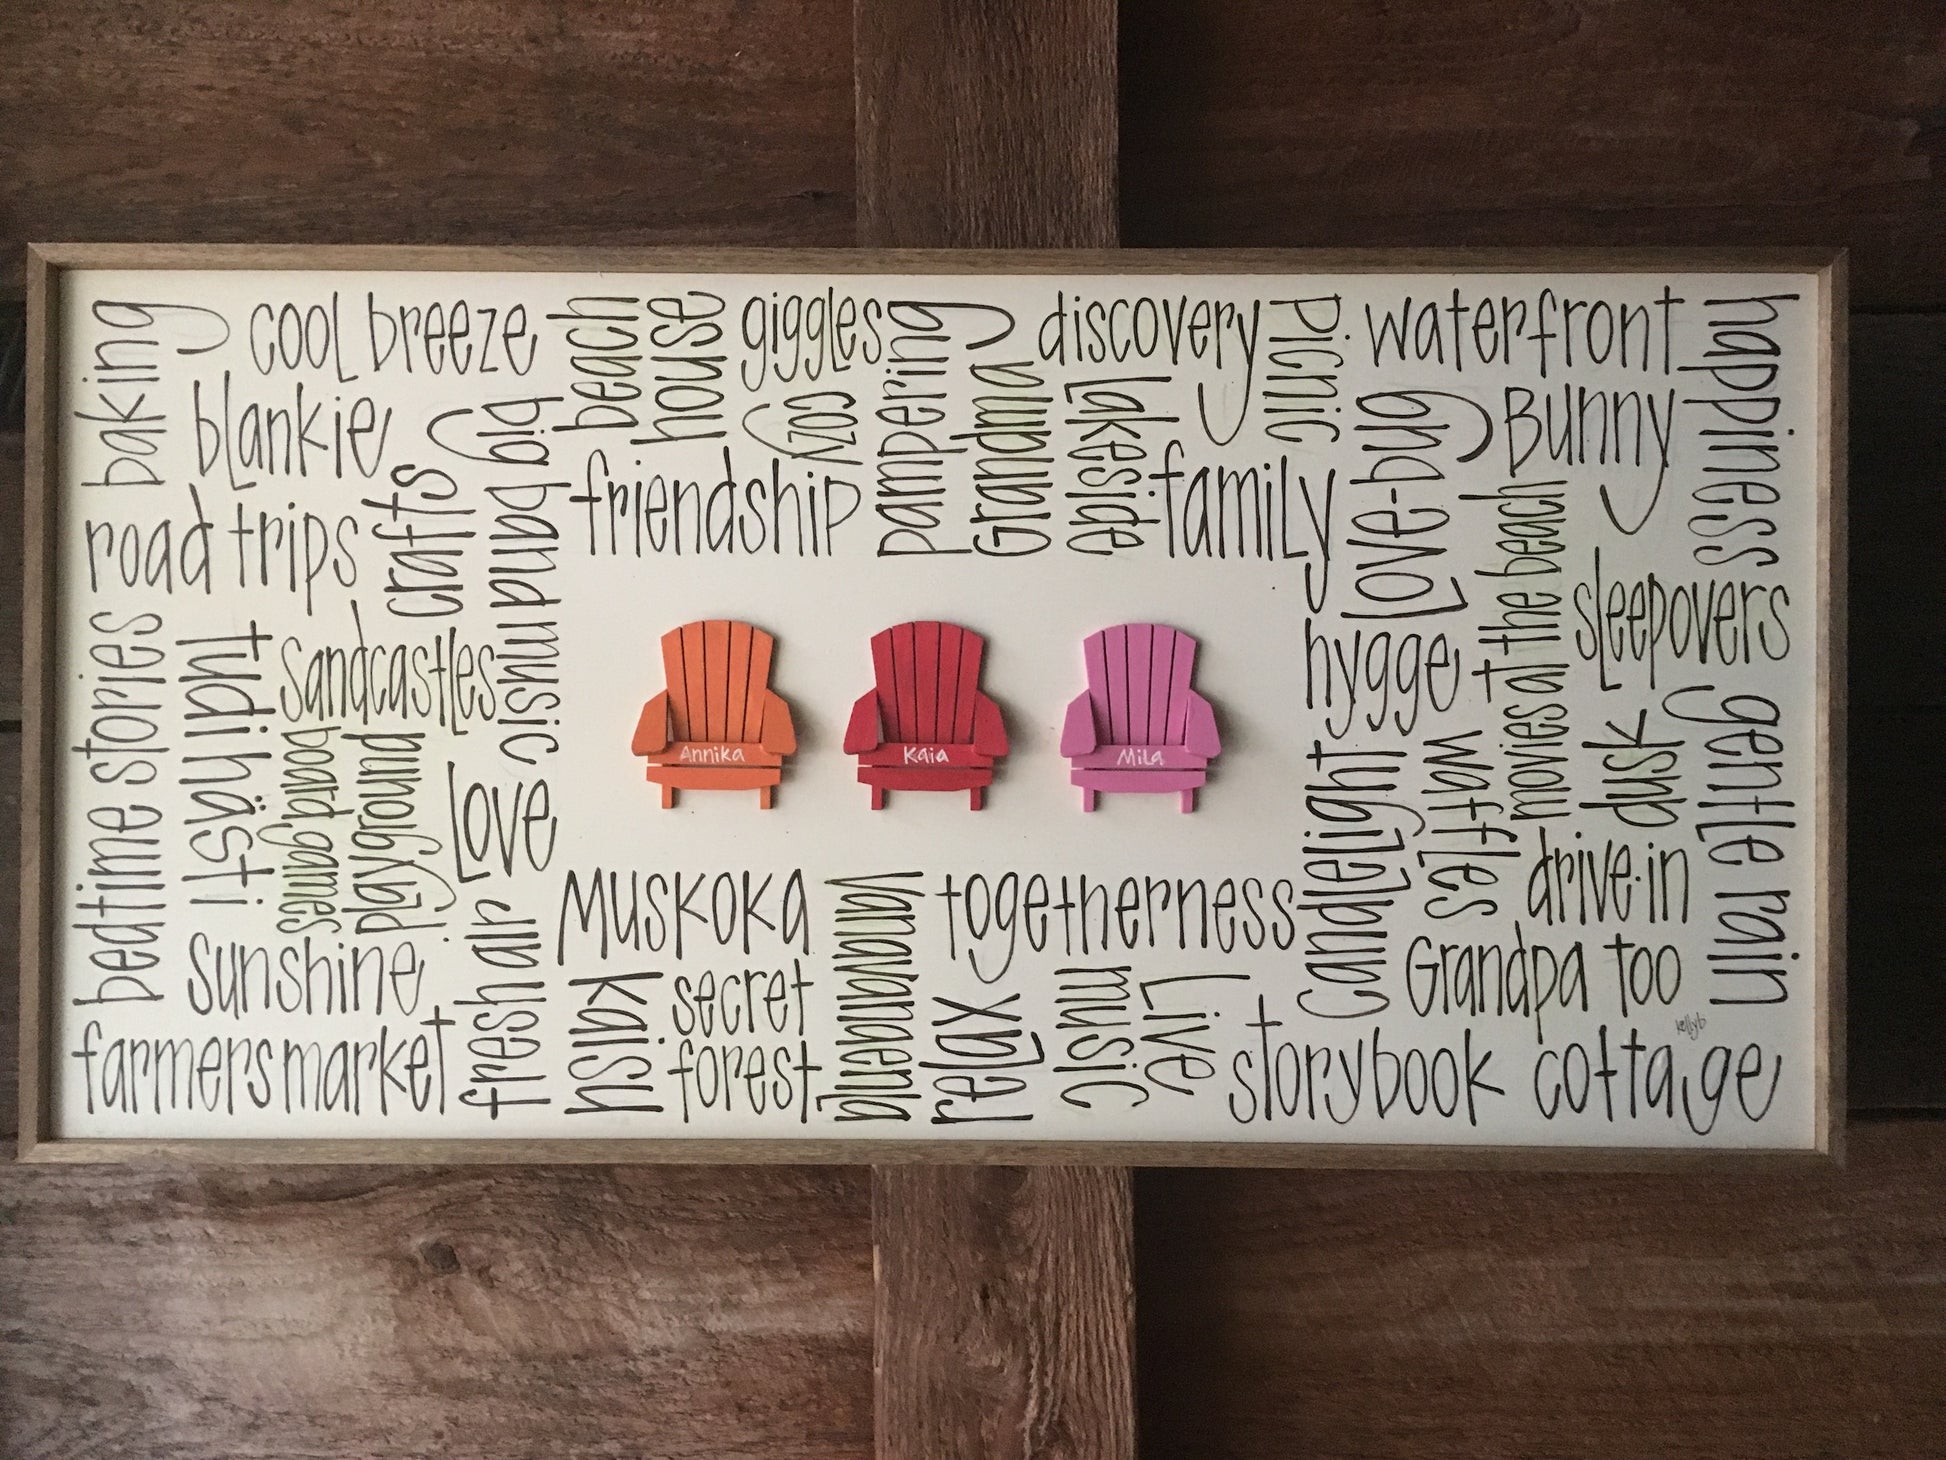 baking
cool breeze
beach
house
giggles
pampering
discovery
picnic
waterfront
happiness
blankie
big band music
cozy
Grandma
Lakeside
love-bug
Bunny
road trips
crafts
friendship
family
movies at the beach
sleepovers
bedtime stories
itsby light
Sandcastles
hygge
board games
playground
Love
Annika
Kaia
Mila
candlelight
waffles
dusk
gentle rain
drive-in
sunshine
fresh air
Muskoka
Vanavanaenld
togetherness
Grandpa too
farmers market
Kaisu
secret
forest
relax
music
Live
storybook cottage
kellyb